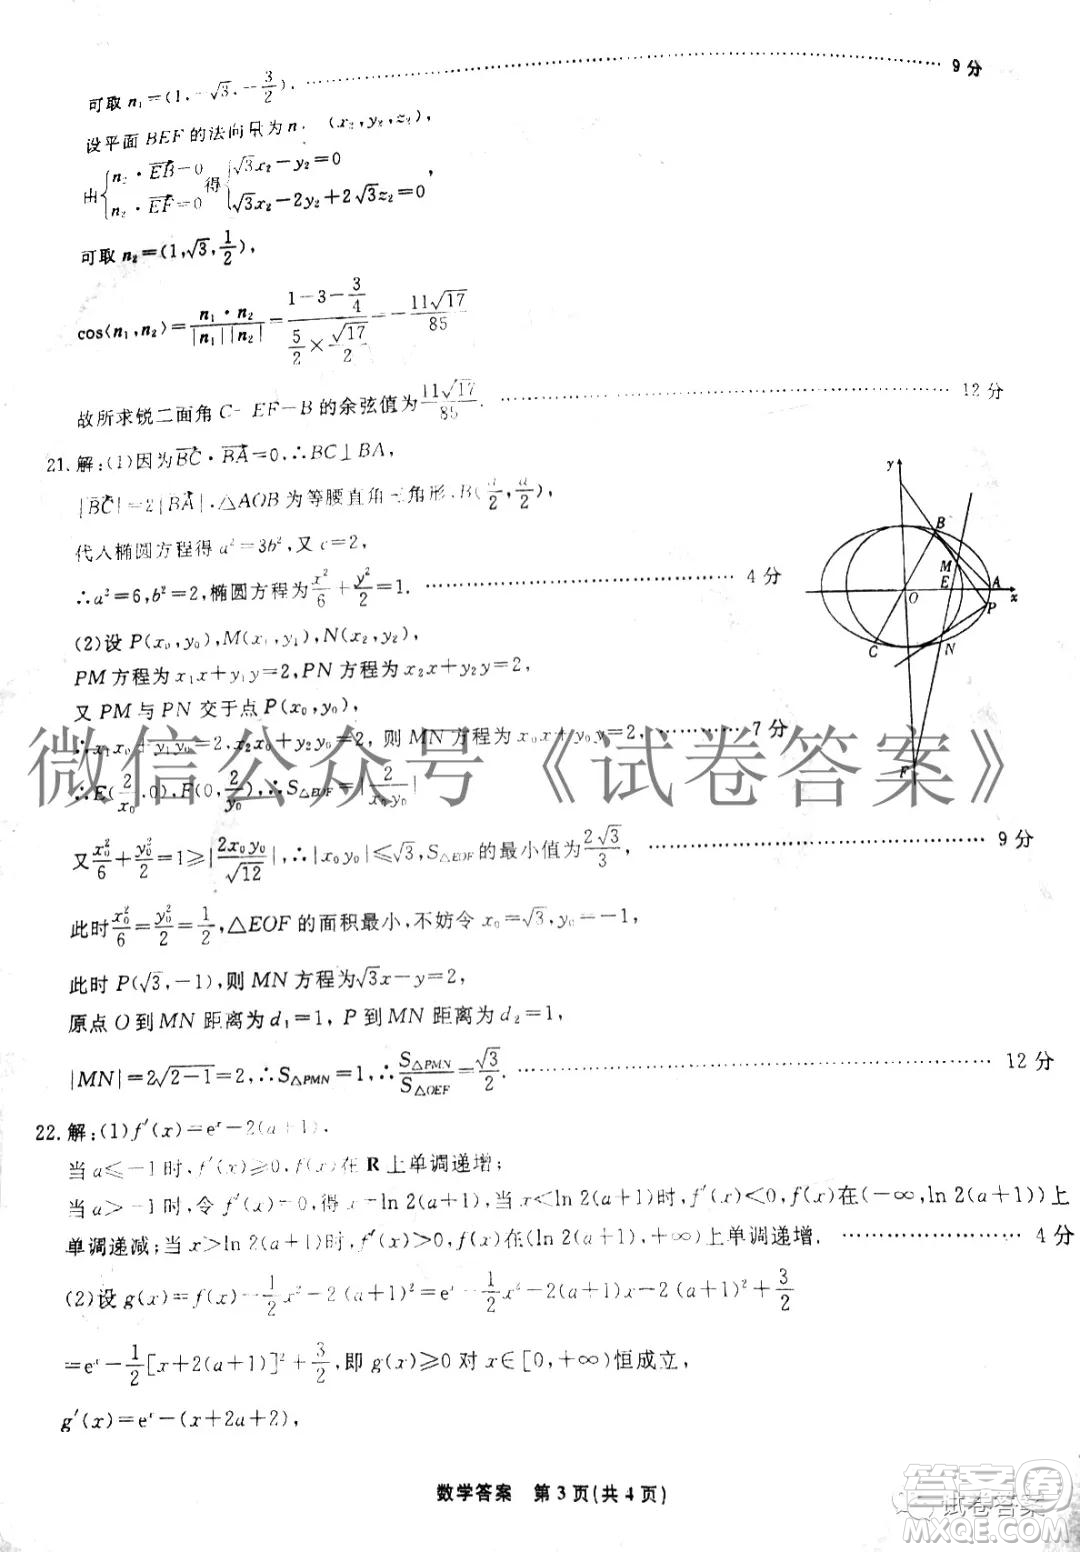 可取 n₁=(1,-√3,-3/2). ……………… 9 分
设平面 BEF 的法向量为 n (x₂,y₂,z₂),
由{n₂·EB=0 n₂·EF=0 得{√3x₂-y₂=0 √3x₂-2y₂+2√3z₂=0,
可取 n₂=(1,√3,1/2),
cos⟨n₁,n₂⟩=n₁·n₂/|n₁||n₂|=(1-3-3/4)/(5/2×√17/2)=-11√17/85
故所求锐二面角 C-EF-B 的余弦值为 11√17/85. ……………… 12 分
21.解:(1)因为BC·BA=0,∴BC⊥BA,
|BC|=2|BA|.△AOB 为等腰直角三角形,B(a/2,a/2),
代入椭圆方程得 a²=3b²,又 c=2,
∴a²=6,b²=2,椭圆方程为x²/6+y²/2=1. ……………… 4 分
(2)设 P(x₀,y₀),M(x₁,y₁),N(x₂,y₂),
PM 方程为 x₁x+y₁y=2,PN 方程为 x₂x+y₂y=2,
又 PM 与 PN 交于点 P(x₀,y₀),
∴x₁x₀+y₁y₀=2,x₂x₀+y₂y₀=2, 则 MN 方程为 x₀x+y₀y=2, ………… 7 分
∴E(2/x₀,0),F(0,2/y₀),∴S△EOF=|2/x₀y₀|
又x₀²/6+y₀²/2=1⩾|2x₀y₀/√12|,∴|x₀y₀|⩽√3,S△EOF的最小值为2√3/3, ……………… 9 分
此时x₀²/6=y₀²/2=1/2,△EOF 的面积最小,不妨令 x₀=√3,y₀=-1,
此时 P(√3,-1),则 MN 方程为√3x-y=2,
原点 O 到 MN 距离为 d₁=1, P 到 MN 距离为 d₂=1,
|MN|=2√2-1=2,∴S△PMN=1,∴S△PMN/S△OEF=√3/2. ……………… 12 分
22.解:(1)f′(x)=eˣ-2(a+1).
当 a⩽-1 时,f′(x)⩾0,f(x)在 R 上单调递增;
当 a>-1 时,令 f′(x)=0,得 x=ln 2(a+1),当 x<ln 2(a+1)时,f′(x)<0,f(x)在(-∞,ln 2(a+1))上
单调递减;当 x>ln 2(a+1)时,f′(x)>0,f(x)在(ln 2(a+1),+∞)上单调递增. ……………… 4 分
(2)设 g(x)=f(x)-1/2x²-2(a+1)²=eˣ-1/2x²-2(a+1)x-2(a+1)²+3/2
=eˣ-1/2[x+2(a+1)]²+3/2,即 g(x)⩾0 对 x∈[0,+∞)恒成立,
g′(x)=eˣ-(x+2a+2),
y
B
M
E
A
O
x
P
C
N
F
微信公众号《试卷答案》
数学答案 第 3 页(共 4 页)
试卷答案
答案圈
MXQE.COM